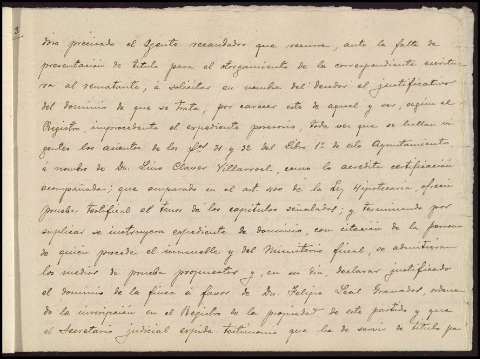 3
dose precisado el Agente recaudador que recurre, ante la falta de
presentación de título para el otorgamiento de la correspondiente escritu-
ra al rematante, á solicitar en nombre del deudor el justificativo
del dominio de que se trata, por carecer este de aquel y ser, según el
Registro, improcedente el expediente posesorio, toda vez que se hallan vi-
gentes los asientos de los fos 31 y 32 del libro 1º de este Ayuntamiento,
á nombre de Dn. Livio Claver Villarroel, como lo acredita certificación
acompañada; que amparado en el art 400 de la Ley Hipotecaria, ofrecía
prueba testifical al tenor de los capítulos señalados; y terminando por
suplicar se instruyera expediente de dominio, con citación de la persona
de quien procede el inmueble y del Ministerio fiscal, se admitieran
los medios de prueba propuestos y, en su día, declarar justificado
el dominio de la finca á favor de Dn. Felipe Leal Granados, ordenan-
do la inscripción en el Registro de la propiedad de este partido y que
el Secretario judicial expida testimonio que ha de servir de título pa-